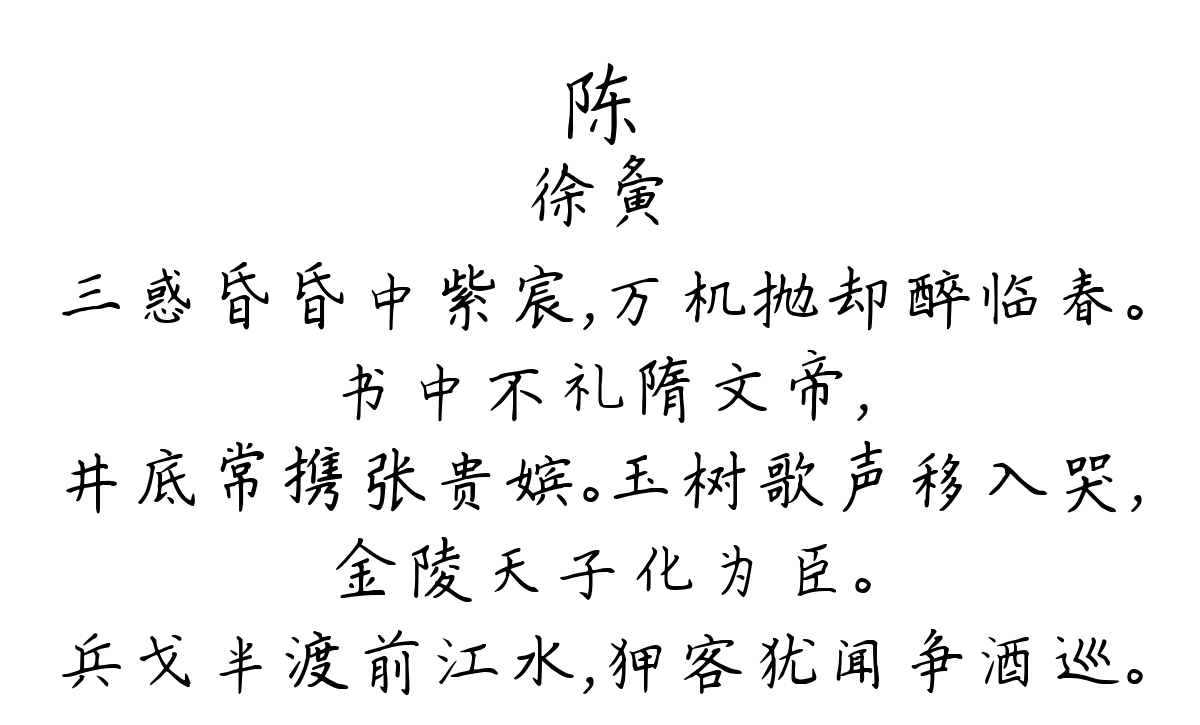 陈
徐夤
三惑昏昏中紫宸,万机抛却醉临春。
书中不礼隋文帝,
井底常携张贵嫔。玉树歌声移入哭,
金陵天子化为臣。
兵戈半渡前江水,狎客犹闻争酒巡。